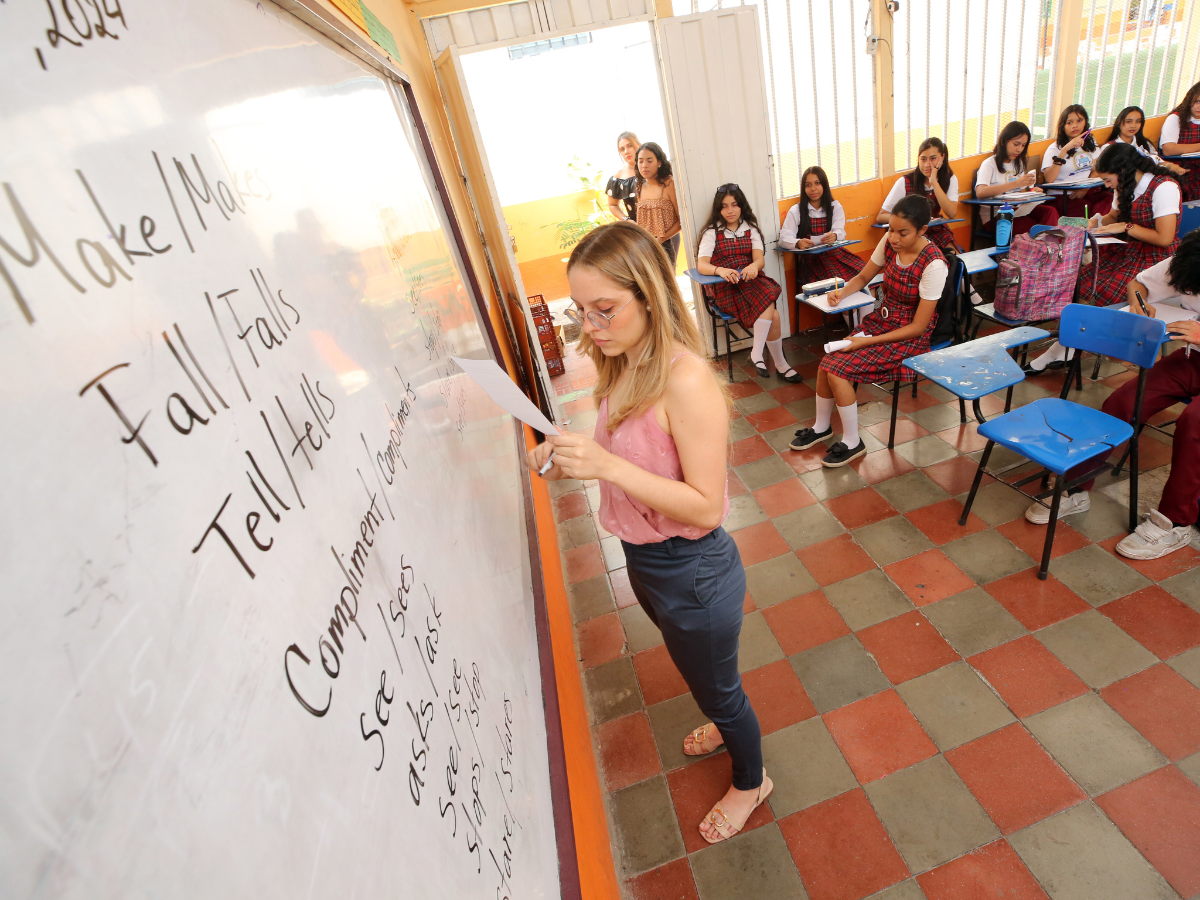 , 2024
Make/Makes
Fall/Falls
Tell/tells
Compliment/Compliments
See/sees
asks/ask
see/see
stops/stop
stare/stares